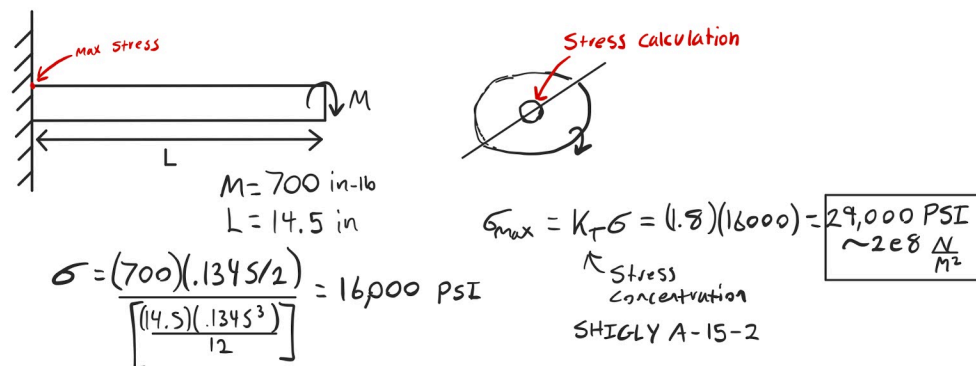 Max Stress
M
L
M = 700 in-lb
L = 14.5 in
σ = (700)(.1345/2) / [(14.5)(.1345³) / 12] = 16,000 PSI
Stress Calculation
σmax = KTσ = (1.8)(16000) = 29,000 PSI
~2e8 N/M²
Stress
concentration
SHIGLY A-15-2